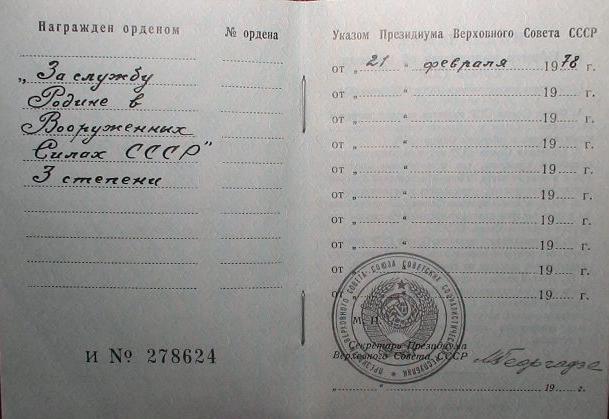 Награжден орденом
№ ордена
„За службу
Родине в
Вооруженных
Силах СССР"
3 степени
И № 278624
Указом Президиума Верховного Совета СССР
от „ 21 “ февраля 1978 г.
от „ “ 19 г.
от „ “ 19 г.
от „ “ 19 г.
от „ “ 19 г.
от „ “ 19 г.
от „ “ 19 г.
от „ “ 19 г.
от „ “ 19 г.
от „ “ 19 г.
М. П.
Секретарь Президиума
Верховного Совета СССР
МГеоргадзе
„ “ 19 г.
ПРЕЗИДИУМ ВЕРХОВНОГО СОВЕТА СОЮЗА СОВЕТСКИХ СОЦИАЛИСТИЧЕСКИХ РЕСПУБЛИК